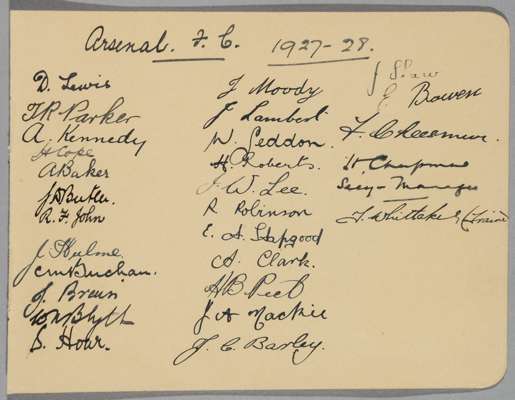 Arsenal. F. C. 1927-28.
D. Lewis
T.R. Parker
A. Kennedy
H Cope
A Baker
J Butler
R. F. John
J. Hulme
C M Buchan.
J. Brain
W N Blyth
S. Hoar.
J Moody
J Lambert
W. Seddon
H. Roberts.
J W. Lee.
R Robinson
E. A. Hapgood
A. Clark.
H B Peel
J A Mackie
J. C. Barley.
J Shaw
E Bowen
H. Chapman
Secy-Manager
T. Whittaker (Trainer)